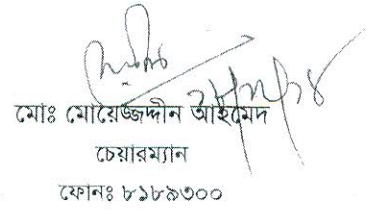 মোঃ মোয়েজ্জদ্দীন আহমেদ
চেয়ারম্যান
ফোনঃ ৮১৮৯৩০০